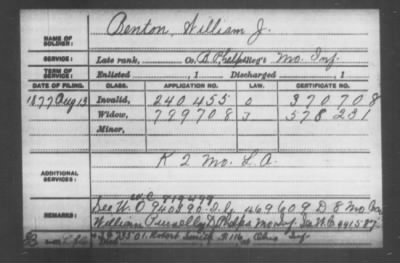 NAME OF SOLDIER: Benton, William J.
SERVICE: Late rank, Co. B, Phelps Reg't Mo. Inf.
TERM OF SERVICE: Enlisted , 1 Discharged , 1
DATE OF FILING. CLASS. APPLICATION NO. LAW. CERTIFICATE NO.
1877 Aug 13 Invalid, 240455 0 370708
Widow, 799708 3 578231
Minor,
ADDITIONAL SERVICES: K 2 Mo. L. A.
W.C. 919499
REMARKS: See W.O. 940890 469609 D 8 Mo.
William Phelps Mo Inf. See W.C. 441587
Robert Smith Ohio Inf.